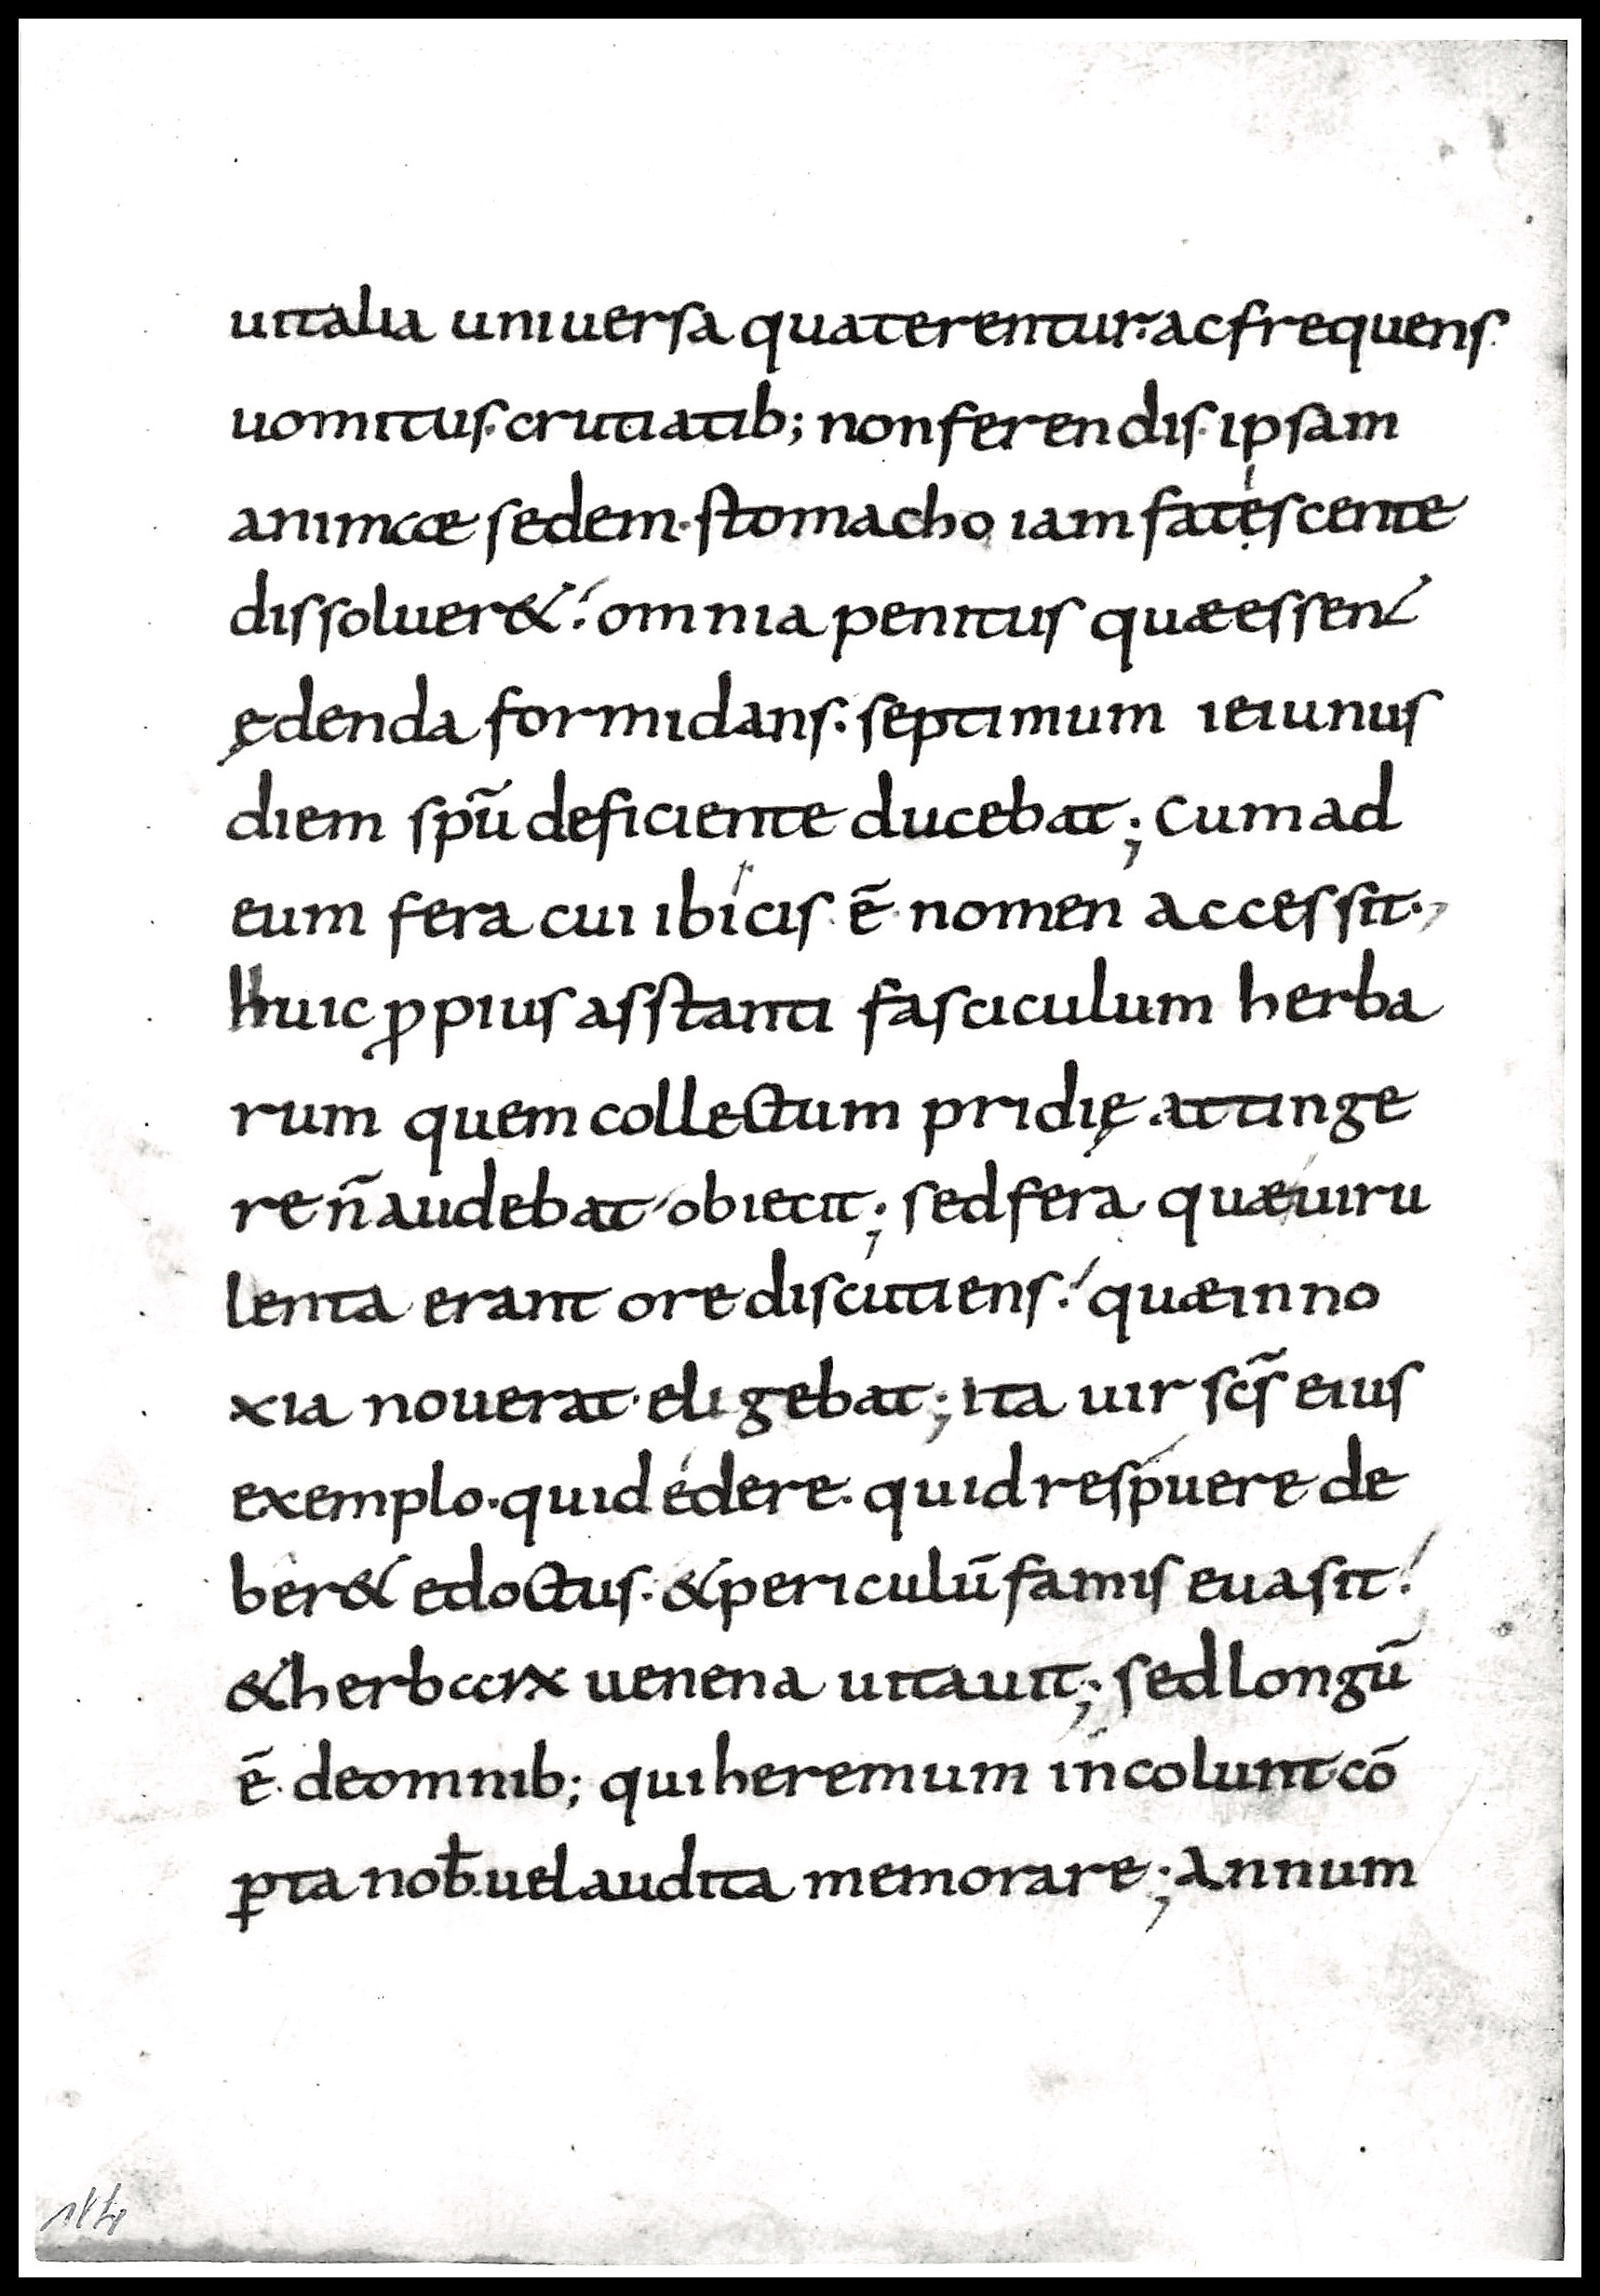 uitalia uniuersa quaterentur. ac frequens.
uomitus. crutiatib; non ferendis. ipsam
animae sedem. stomacho iam fatéscente
dissoluer&! omnia penitus quae essent
ędenda formidans. septimum ieiunus
diem spũ deficiente ducebat; Cum ad
eum fera cui ibicis. ē. nomen accessit.,
huic ꝓpius asstanti fasciculum herba
rum quem collectum pridię attinge
re ñ audebat obiecit; sed fera quae uiru
lenta erant ore discutiens! quae inno
xia nouerat eligebat; ita uir scs̃ eius
exemplo. quid édere. quid respuere de
ber& edoctus. & periculũ famis euasit!
& herbarꝝ uenena uitauit; sed longũ
ē. de omnib; qui heremum incolunt cō
ꝑta nob̶. uel audita memorare; Annum